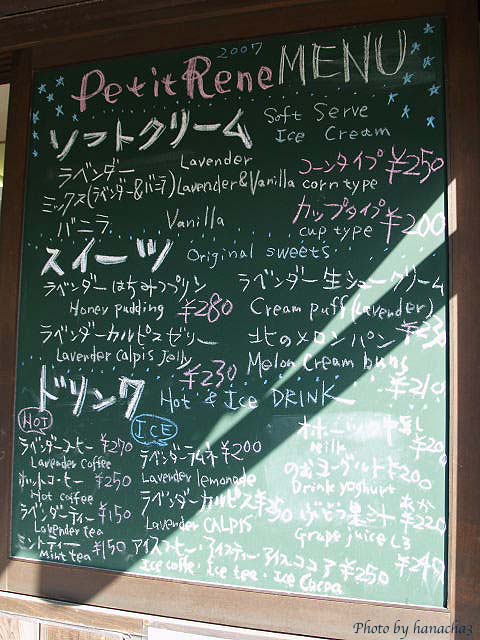 2007
Petit Rene MENU
ソフトクリーム Soft Serve Ice Cream
ラベンダー Lavender
ミックス(ラベンダー&バニラ) Lavender&Vanilla
バニラ Vanilla
コーンタイプ ¥250
corn type
カップタイプ ¥200
cup type
スイーツ Original sweets
ラベンダーはちみつプリン
Honey pudding ¥280
ラベンダーカルピスゼリー
Lavender calpis Jelly
¥230
ラベンダー生シュークリーム
Cream puff (Lavender)
北のメロンパン
Melon Cream buns
¥210
ドリンク Hot & Ice DRINK
HOT
ラベンダーコーヒー ¥270
Lavender coffee
ホットコーヒー ¥250
Hot coffee
ラベンダーティー ¥150
Lavender tea
ミントティー ¥150
Mint tea
ICE
ラベンダーラムネ ¥200
Lavender lemonade
ラベンダーカルピス
Lavender CALPIS
アイスコーヒー・アイスティー・アイスココア ¥250
Ice coffe・Ice tea・Ice Cocoa
Milk
のむヨーグルト ¥200
Drink yoghurt
ぶどう果汁 あか ¥220
Grape juice しろ ¥240
Photo by hanacha3